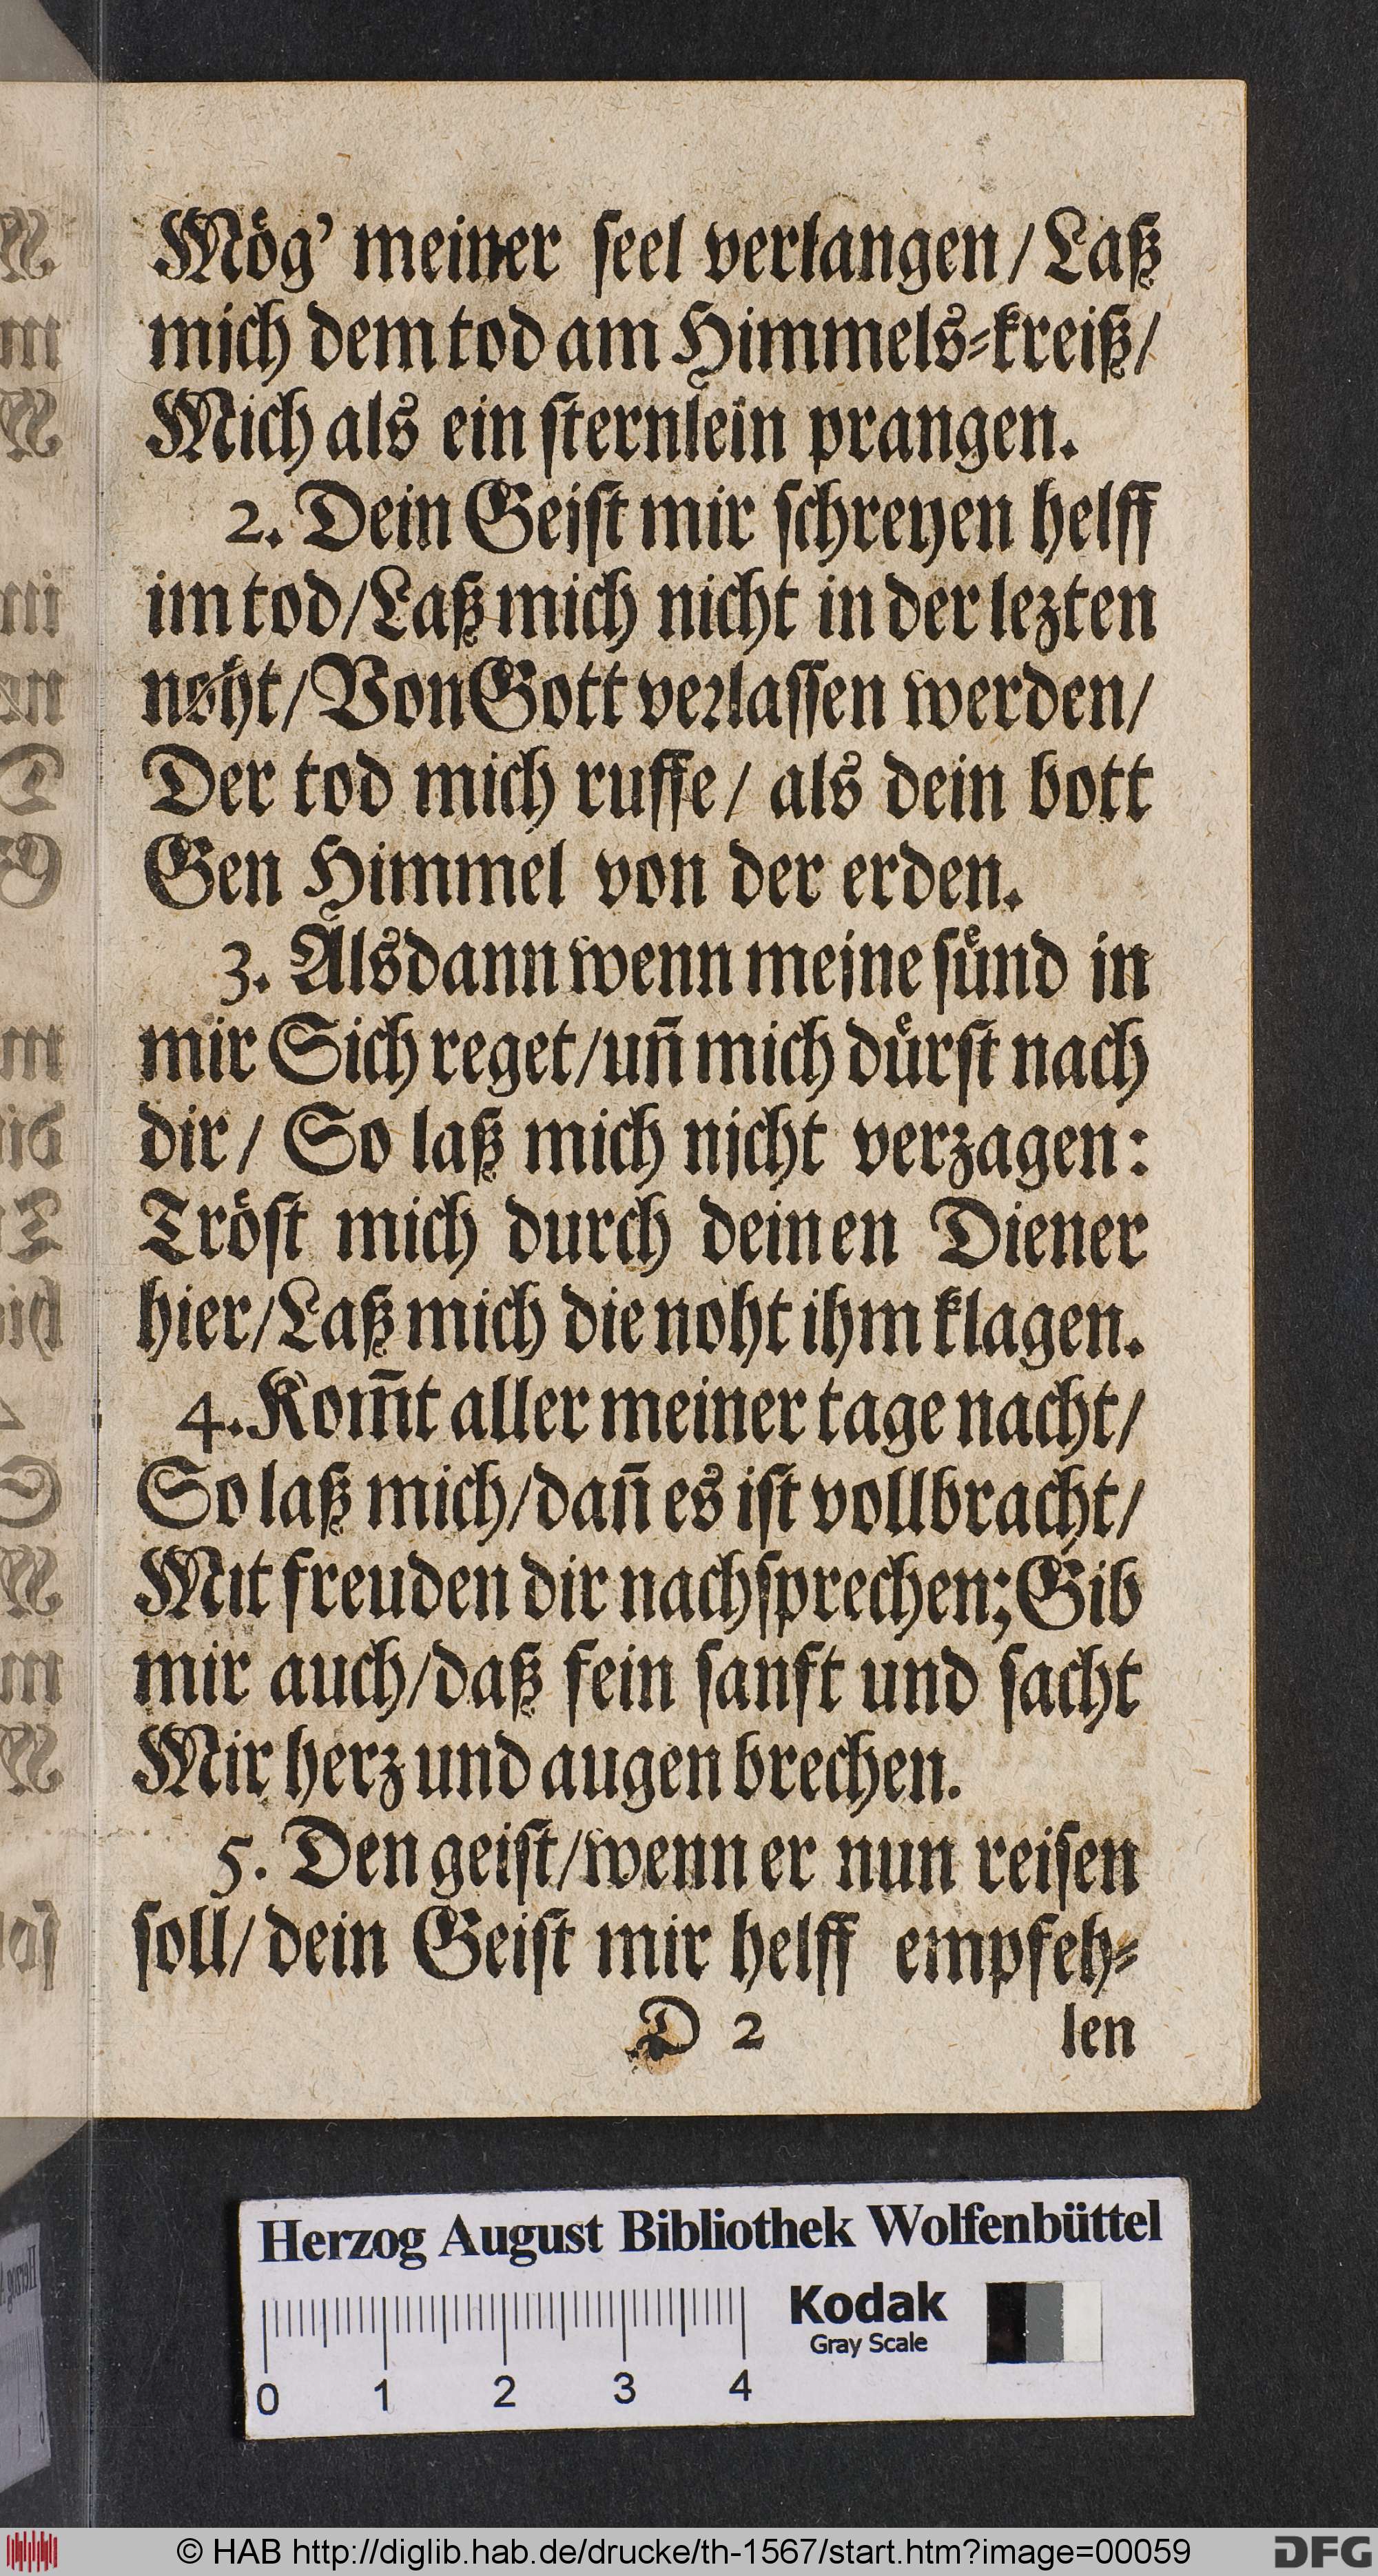 Mög’ meiner seel verlangen / Laß
mich dem tod am Himmels-kreiß /
Mich als ein sternlein prangen.
2. Dein Geist mir schreyen helff
im tod / Laß mich nicht in der lezten
noht / Von Gott verlassen werden /
Der tod mich ruffe / als dein bott
Gen Himmel von der erden.
3. Alsdann wenn meine sünd in
mir Sich reget / un̄ mich dürst nach
dir / So laß mich nicht verzagen:
Tröst mich durch deinen Diener
hier / Laß mich die noht ihm klagen.
4. Kom̄t aller meiner tage nacht /
So laß mich / dan̄ es ist vollbracht /
Mit freuden dir nachsprechen; Gib
mir auch / daß fein sanft und sacht
Mir herz und augen brechen.
5. Den geist / wenn er nun reisen
soll / dein Geist mir helff empfeh-
D 2 len
Herzog August Bibliothek Wolfenbüttel
Kodak
Gray Scale
0 1 2 3 4
© HAB http://diglib.hab.de/drucke/th-1567/start.htm?image=00059
DFG